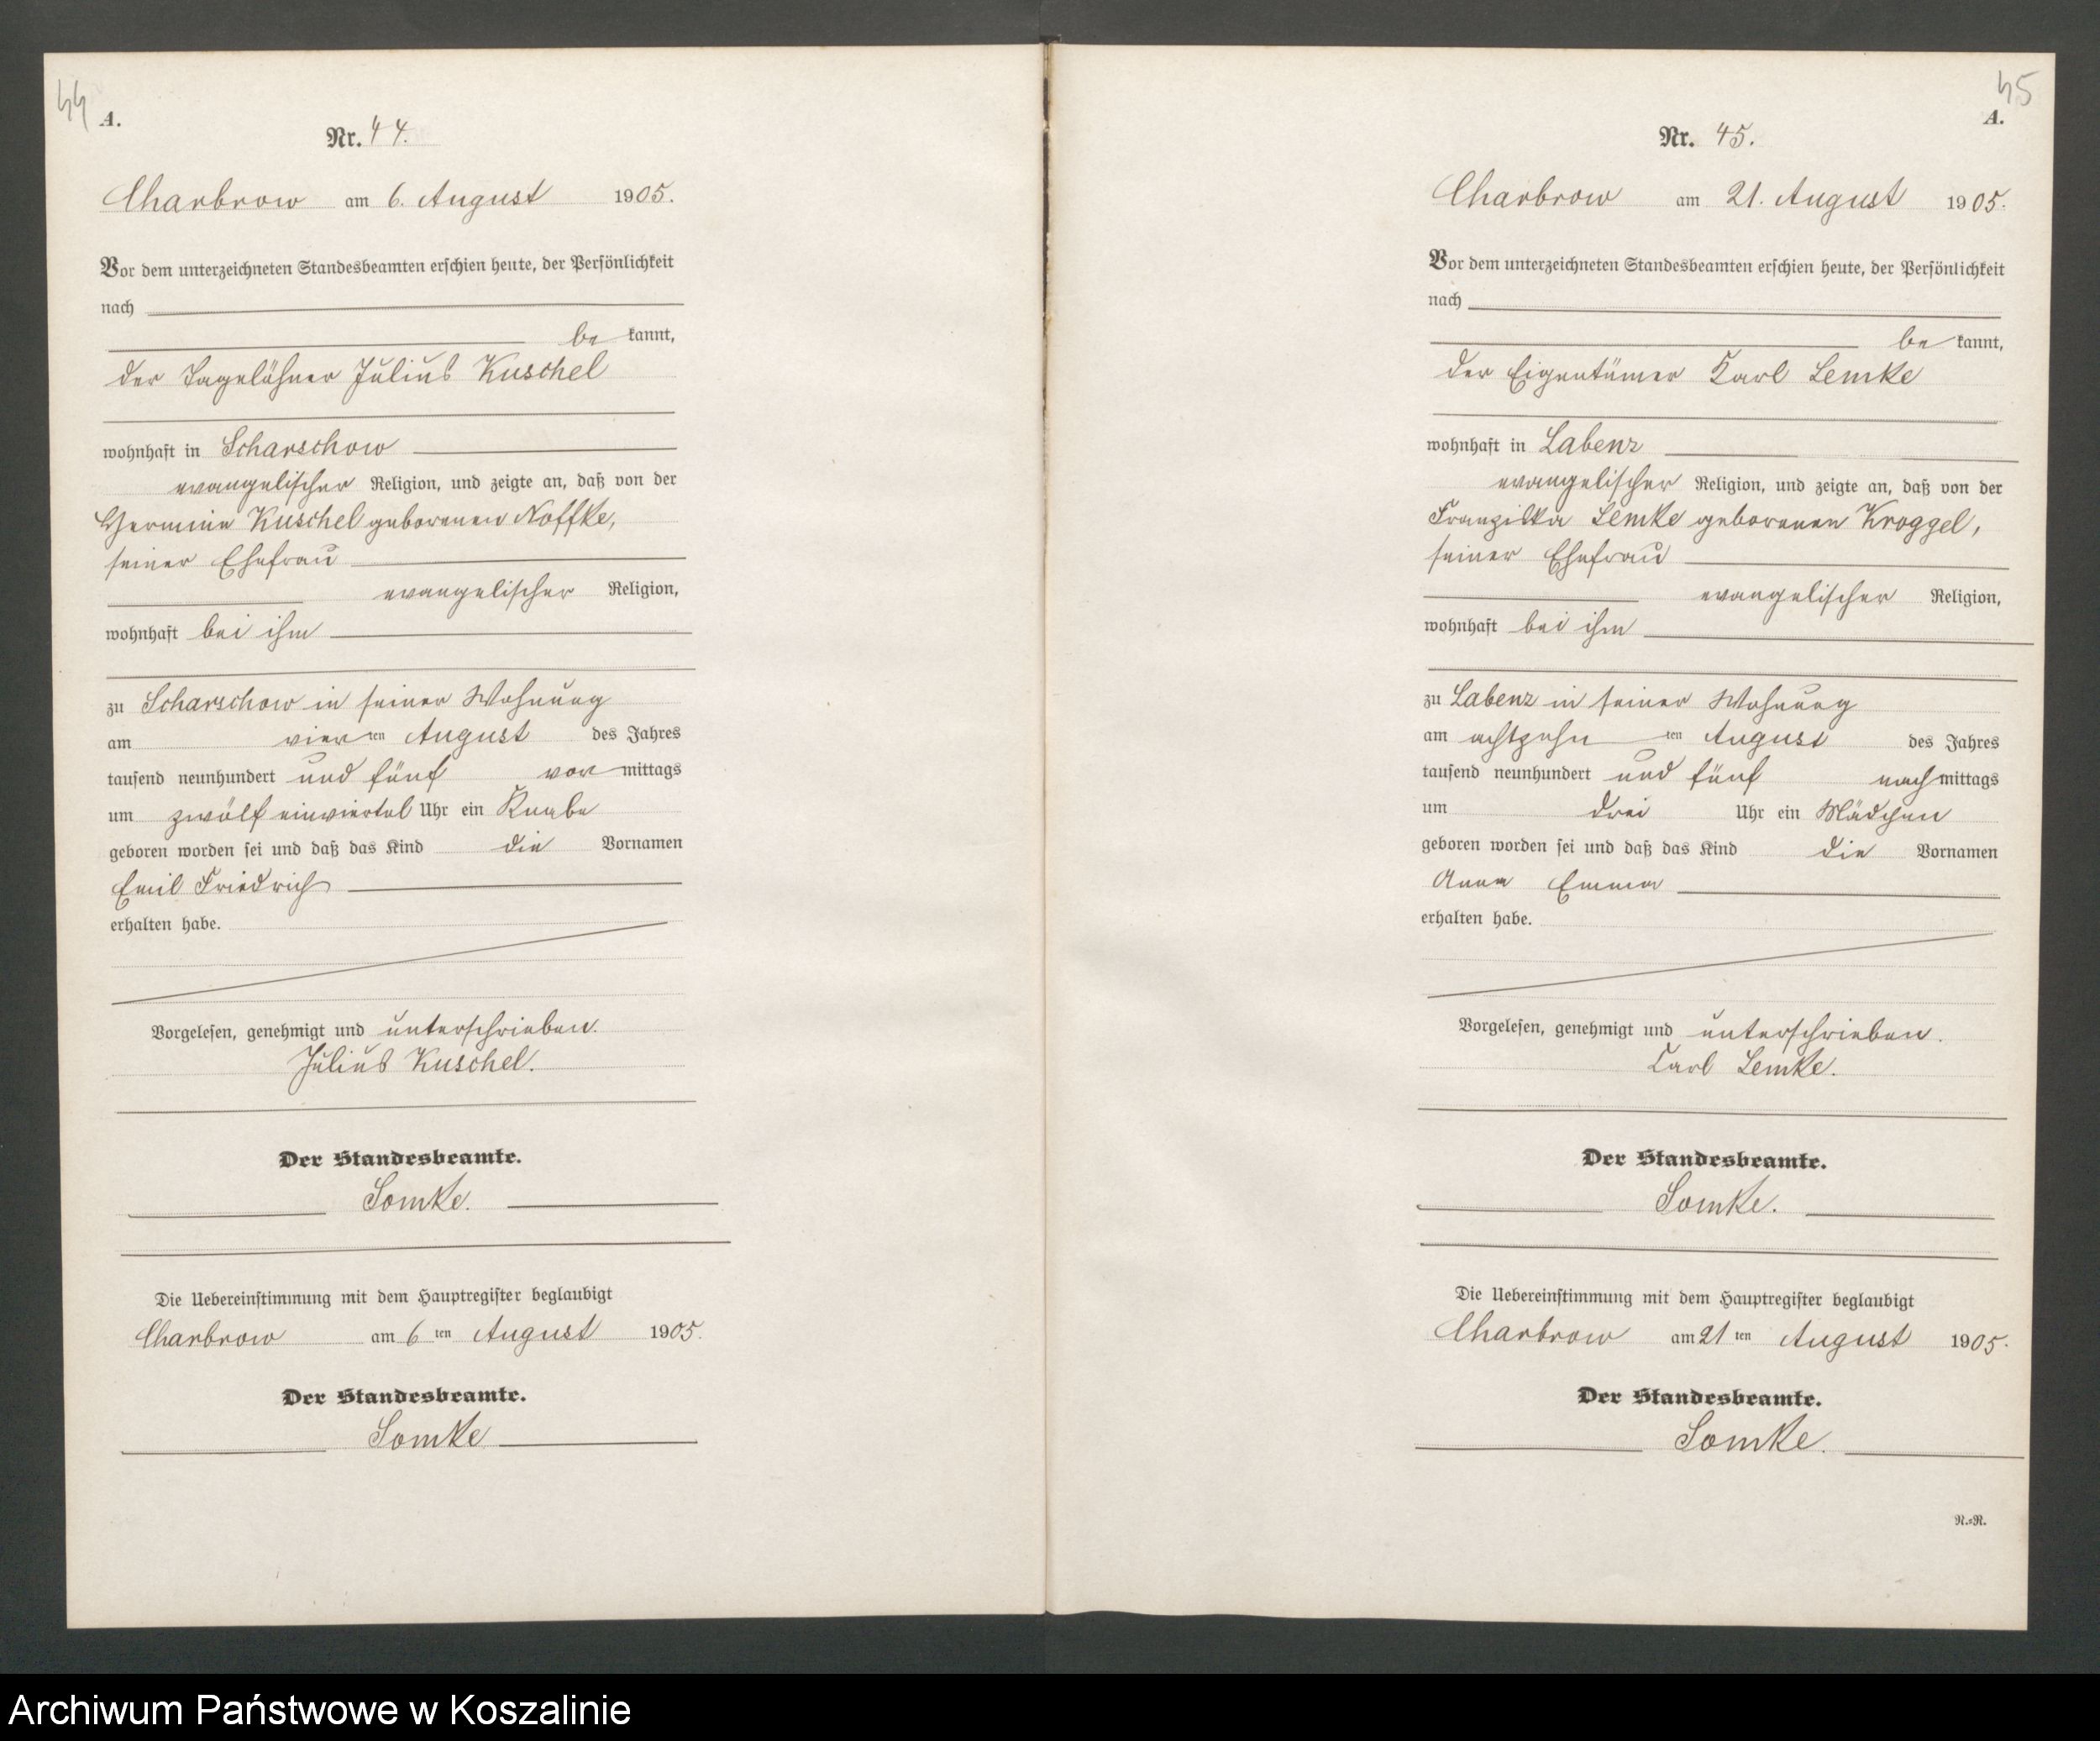 44
A.
Nr. 44.
Charbrow am 6. August 1905.
Vor dem unterzeichneten Standesbeamten erschien heute, der Persönlichkeit
nach
be kannt,
der Tagelöhner Julius Kuschel
wohnhaft in Scharschow
evangelischer Religion, und zeigte an, daß von der
Hermine Kuschel geborenen Noffke,
seiner Ehefrau
evangelischer Religion,
wohnhaft bei ihm
zu Scharschow in seiner Wohnung
am vier ten August des Jahres
tausend neunhundert und fünf vor mittags
um zwölf einviertel Uhr ein Knabe
geboren worden sei und daß das Kind die Vornamen
Emil Friedrich
erhalten habe.
Vorgelesen, genehmigt und unterschrieben.
Julius Kuschel.
Der Standesbeamte.
Somke.
Die Uebereinstimmung mit dem Hauptregister beglaubigt
Charbrow am 6 ten August 1905.
Der Standesbeamte.
Somke
45
A.
Nr. 45.
Charbrow am 21. August 1905.
Vor dem unterzeichneten Standesbeamten erschien heute, der Persönlichkeit
nach
be kannt,
der Eigentümer Karl Lemke
wohnhaft in Labenz
evangelischer Religion, und zeigte an, daß von der
Franziska Lemke geborenen Kroggel,
seiner Ehefrau
evangelischer Religion,
wohnhaft bei ihm
zu Labenz in seiner Wohnung
am achtzehn ten August des Jahres
tausend neunhundert und fünf nach mittags
um drei Uhr ein Mädchen
geboren worden sei und daß das Kind die Vornamen
Anna Emma
erhalten habe.
Vorgelesen, genehmigt und unterschrieben.
Carl Lemke.
Der Standesbeamte.
Somke.
Die Uebereinstimmung mit dem Hauptregister beglaubigt
Charbrow am 21 ten August 1905.
Der Standesbeamte.
Somke.
N.=R.
Archiwum Państwowe w Koszalinie